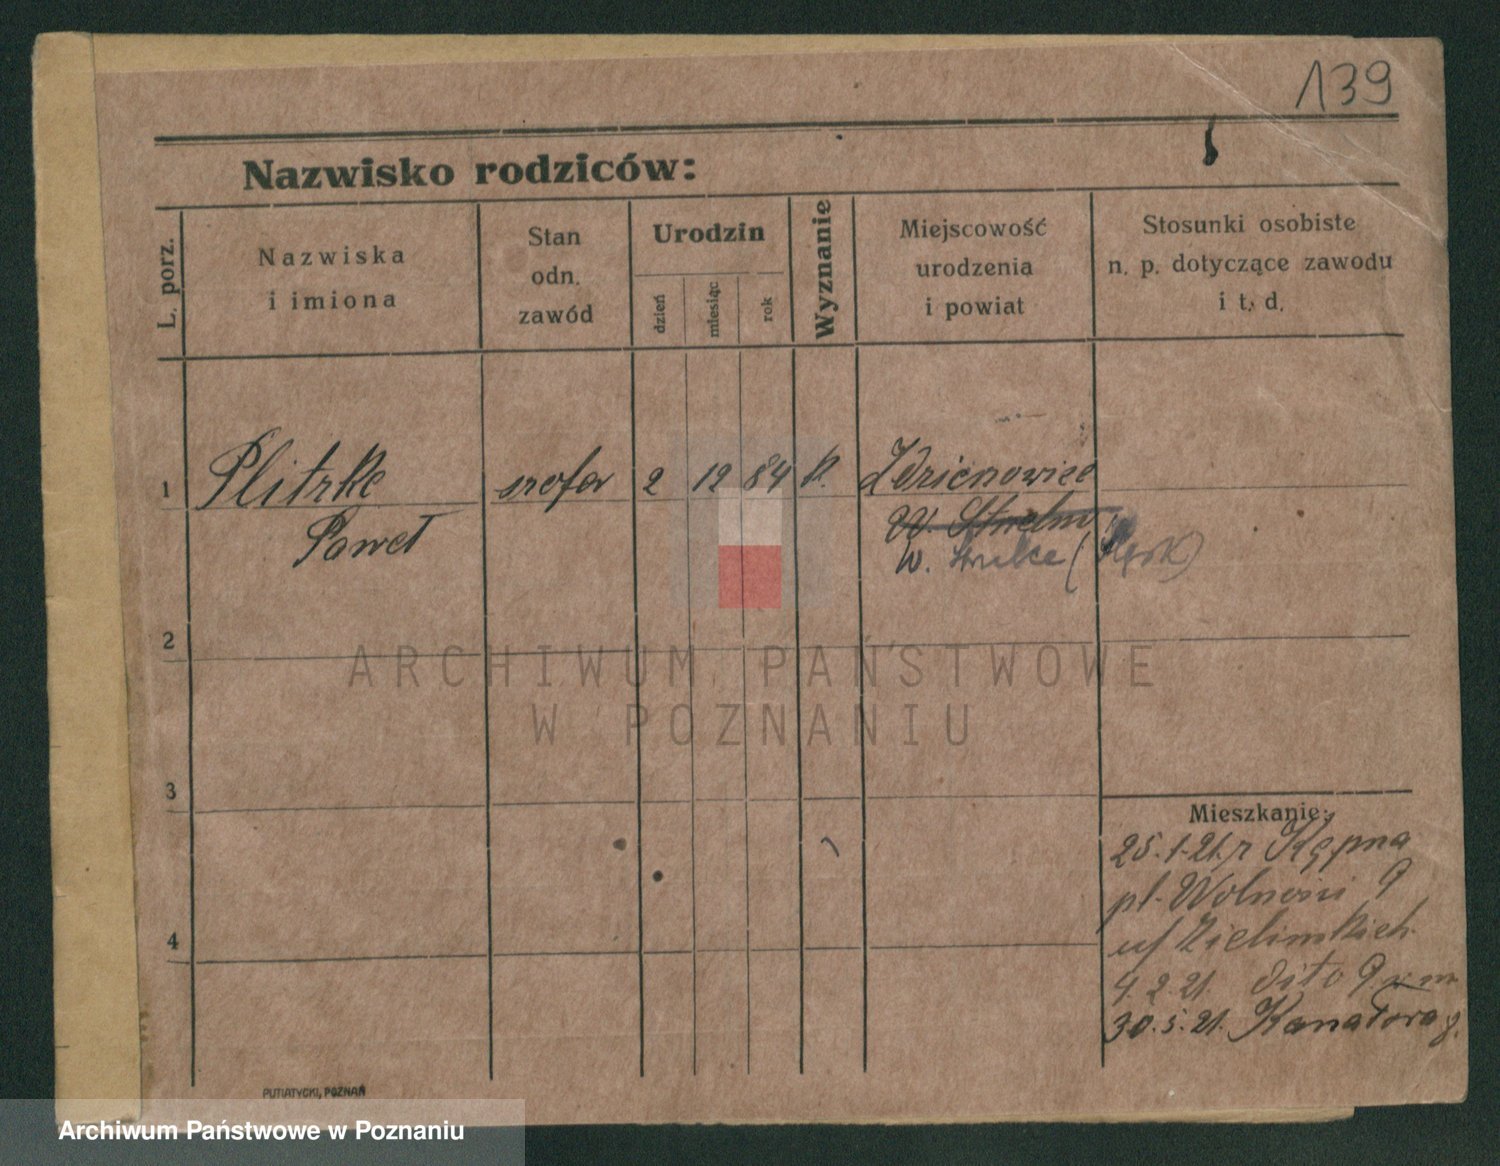 139
Nazwisko rodziców:
L. porz.
Nazwiska
i imiona
Stan
odn.
zawód
Urodzin
dzień
miesiąc
rok
Wyznanie
Miejscowość
urodzenia
i powiat
Stosunki osobiste
n. p. dotyczące zawodu
i t. d.
1
Plitzke szofer 2 12 84 k.
Paweł
W. Strelno
W.
2
3
4
Mieszkanie:
25.1.21. z Kępna
pl. Wolności 9
4.2.21. dito 9
30.5.21. Kanałowa
PUTIATYCKI, POZNAŃ
ARCHIWUM PAŃSTWOWE
W POZNANIU
Archiwum Państwowe w Poznaniu